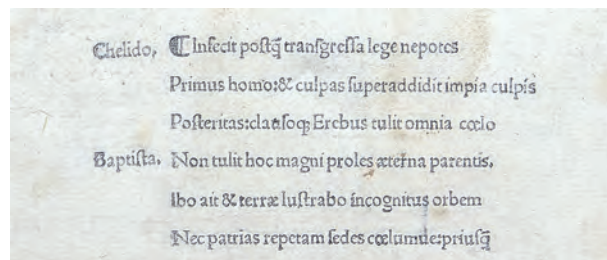 Chelido, ¶ Infecit poſtq̄ tranſgreſſa lege nepotes
Primus homo:& culpas ſuperaddidit impia culpis
Poſteritas:clauſoq; Erebus tulit omnia cœlo
Baptiſta, Non tulit hoc magni proles æterna parentis,
Ibo ait & terræ luſtrabo incognitus orbem
Nec patrias repetam ſedes cœlumue:priuſq̄